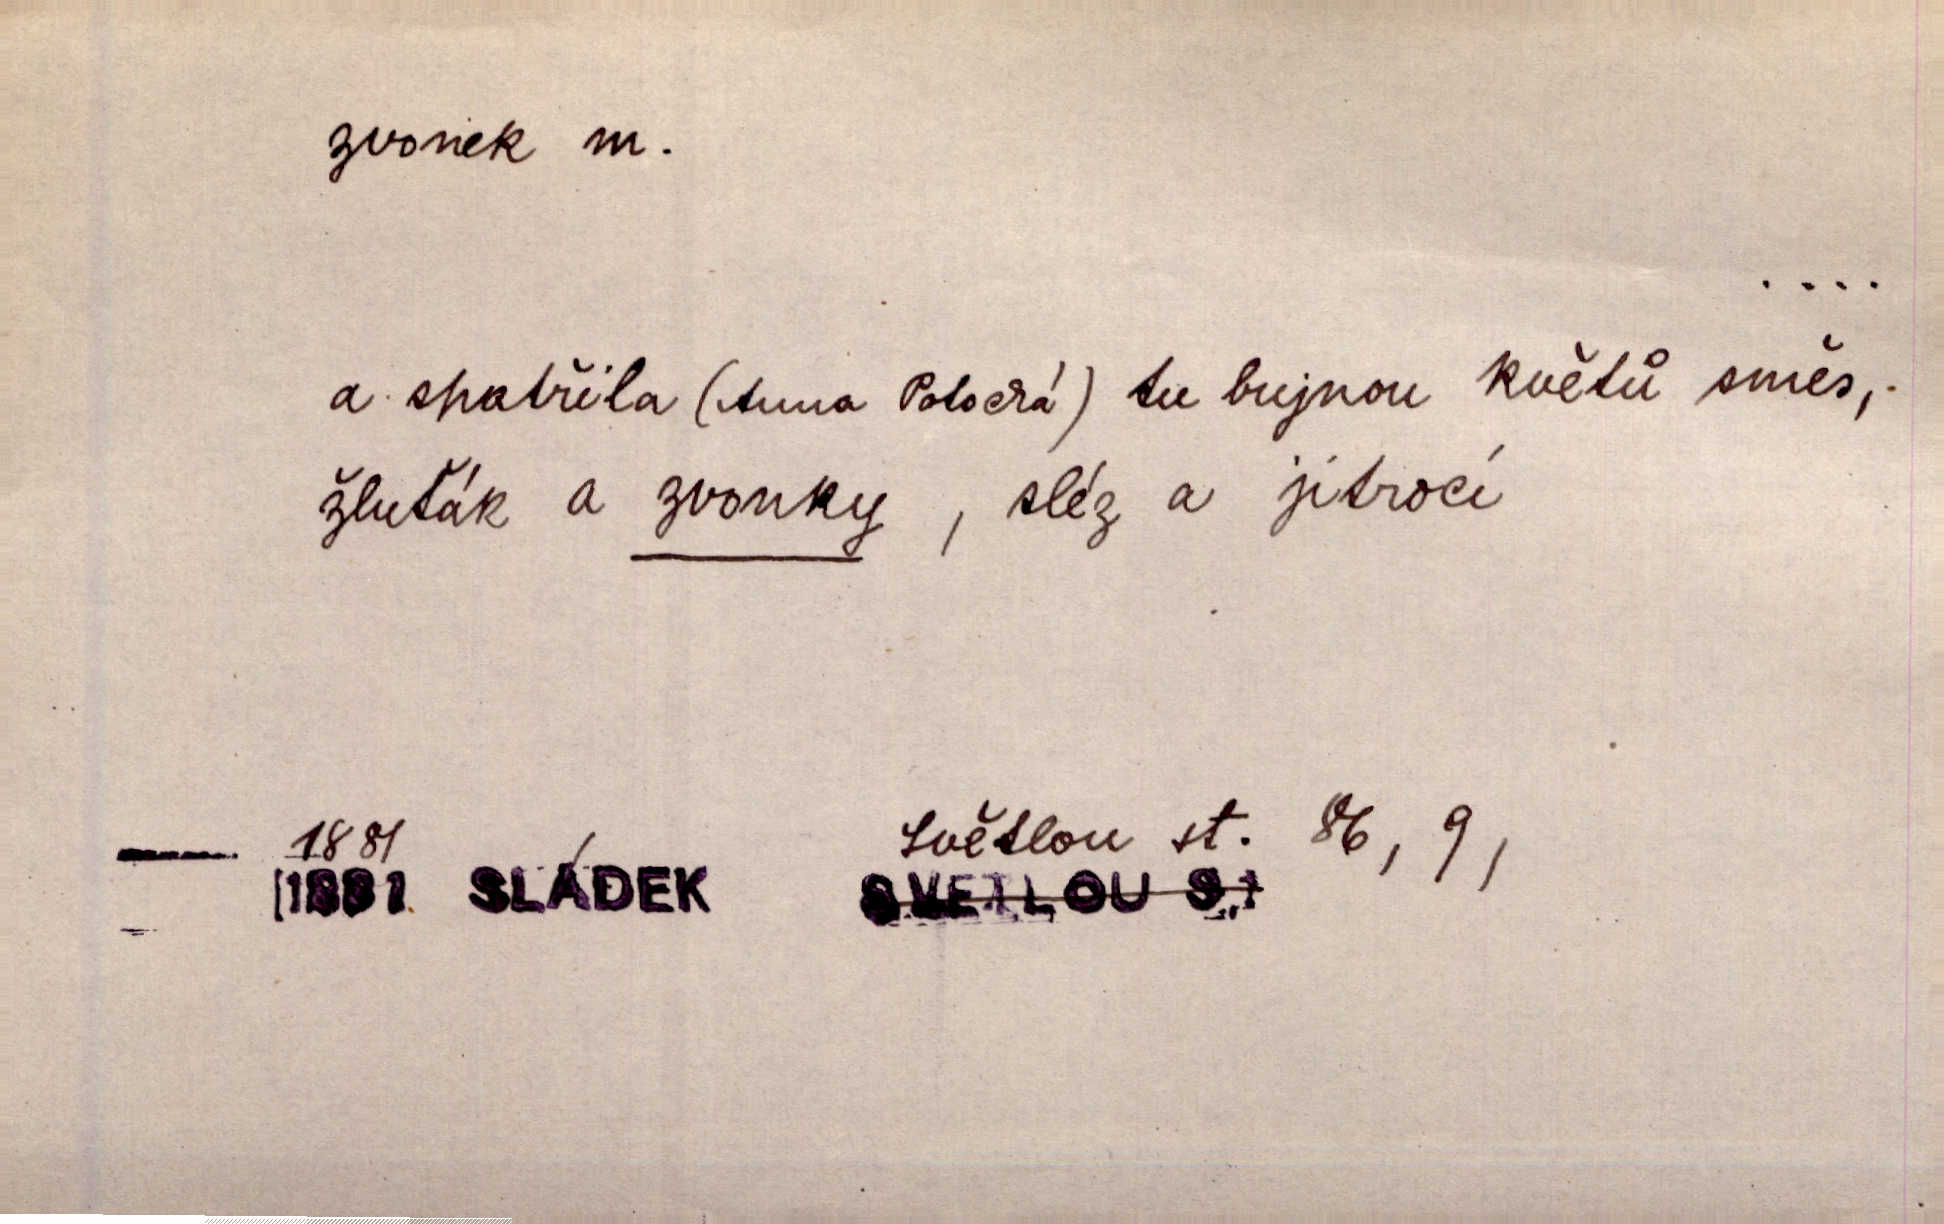 zvonek m.
....
a spatřila (Anna Potocká) tu bujnou květů směs,
žluťák a zvonky, sléz a jitrocí
1881 Světlou st. 86, 9,
1881 SLÁDEK SVETLOU S.